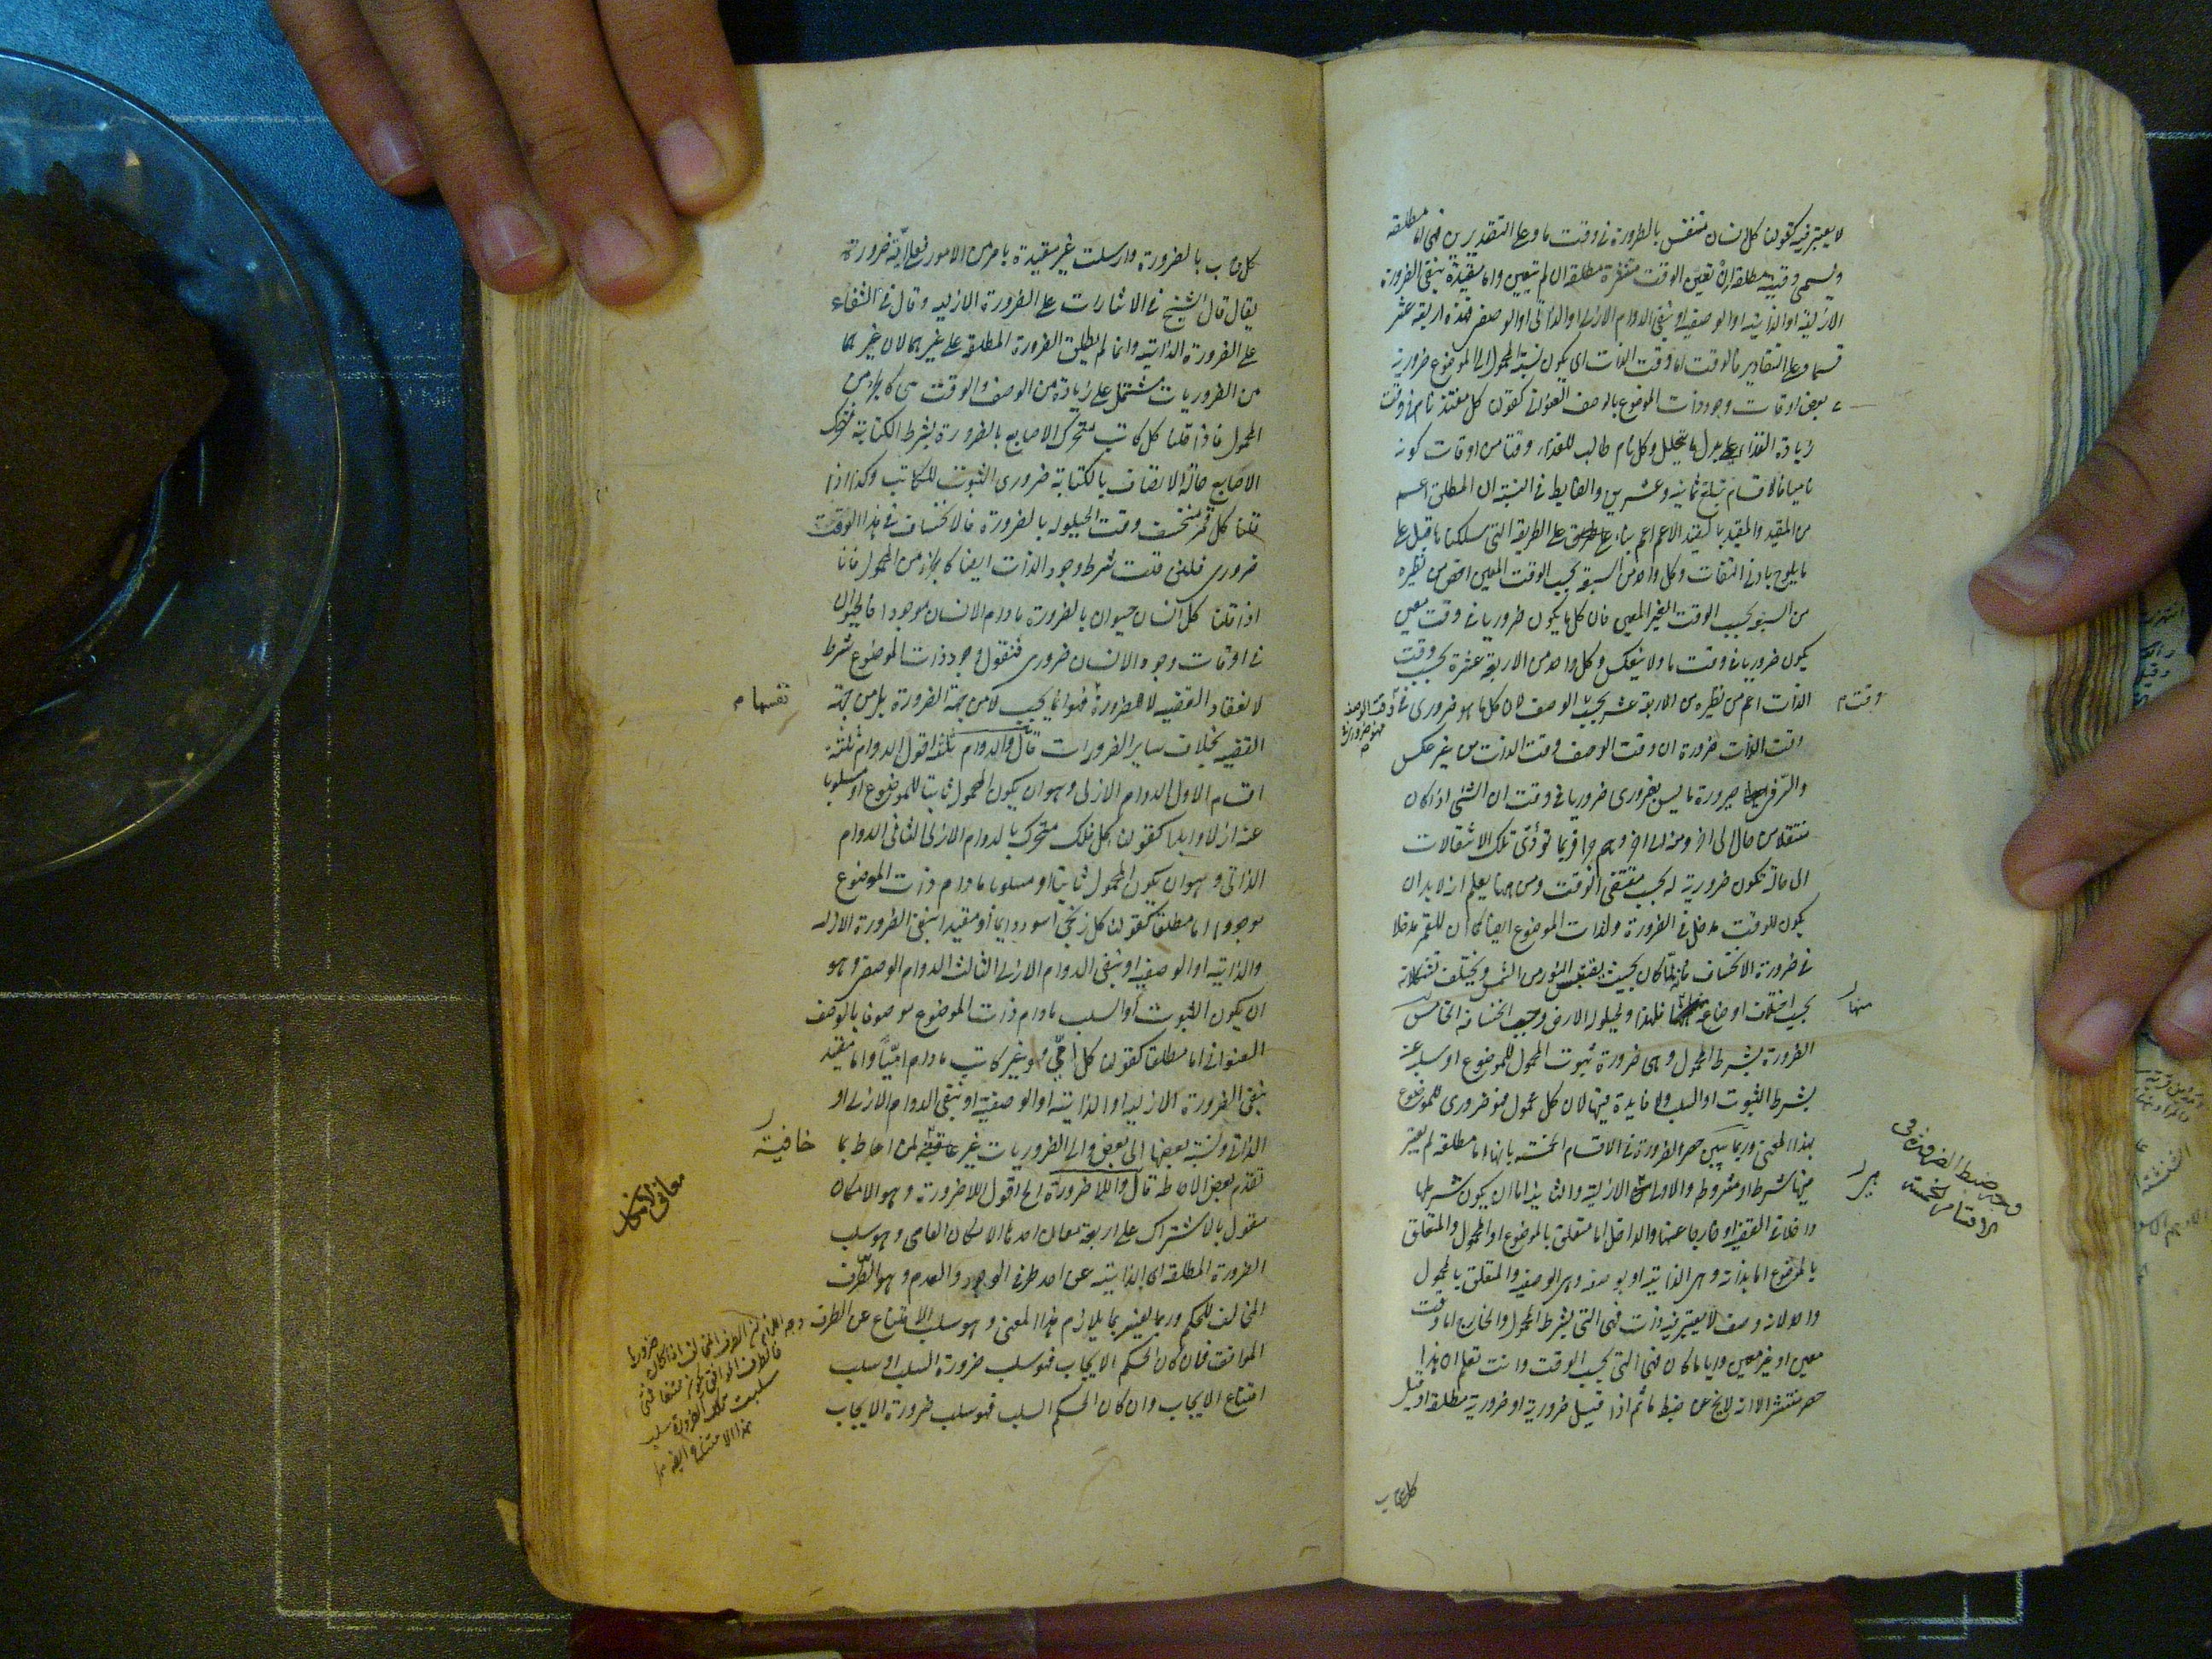 لا يعتبر فيه كقولنا كل انسان متنفس بالضرورة في وقت ما وعلى التقديرين فهي اما مطلقه
وتسمى وقتية مطلقة ان تعين الوقت منتشرة مطلقة ان لم يتعين واما مقيدة بنفي الضرورة
الازلية او الذاتية او الوصفية او بنفي الدوام الازلي او الذاتي او الوصفي فهذه اربعة عشر
قسما وعلى التقادير فالوقت اما وقت الذات اي يكون نسبة المحمول الى الموضوع ضرورية
بعض اوقات وجود ذات الموضوع بالوصف العنواني كقولنا كل مغتذ نام في وقت
زيادة الغذاء على بدل ما يتحلل وكل نام طالب للغذاء وقتا من اوقات كونه
ناميا فالاقسام تبلغ ثمانية وعشرين والضابط في النسبة ان المطلق اعم
من المقيد والمقيد بالقيد الاعم اعم بناء على الطريقة التي سلكناها قبل على
ما يلوح بادنى التفات وكل واحد من السبعة بحسب الوقت المعين اخص من نظيره
من السبعة بحسب الوقت الغير المعين فان كل ما يكون ضروريا في وقت معين
يكون ضروريا في وقت ما ولا ينعكس وكل واحد من الاربعة عشرة بحسب وقت
الذات اعم من نظيره من الاربعة عشر بحسب الوصف لان كل ما هو ضروري في وقت الوصف فهو ضروري في
وقت الذات ضرورة ان وقت الوصف وقت الذات من غير عكس
والسر في صيرورة ما ليس بضروري ضروريا في وقت ان الشئ اذا كان
منتقلا من حال الى اخر ومنه الى اخر وهلم جرا فربما تؤدي تلك الانتقالات
الى حالة تكون ضرورية له بحسب مقتضى الوقت ومن ههنا يعلم انه لا بد ان
يكون للوقت مدخل في الضرورة ولذات الموضوع ايضا كما ان للقمر مدخلا
في ضرورة الانخساف فانه لما كان بحيث يقتبس النور من الشمس وتختلف تشكلاته
بحسب اختلاف اوضاعه منها فلهذا ولحيلولة الارض وجب انخسافه الخامس
الضرورة بشرط المحمول وهي ضرورة ثبوت المحمول للموضوع او سلبه عنه
بشرط الثبوت او السلب ولا فايدة فيها لان كل محمول فهو ضروري للموضوع
بهذا المعنى وربما يبين حصر الضرورة في الاقسام الخمسة بانها اما مطلقة لم يعتبر
فيها شرط او مشروطه والاولى هي الازلية والثانية اما ان يكون شرطها
داخلا في القضية او خارجا عنها والداخل اما متعلق بالموضوع او المحمول والمتعلق
بالموضوع اما بذاته وهي الذاتية او بوصفه وهي الوصفية والمتعلق بالمحمول
معين او غير معين وايا ما كان فهي التي بحسب الوقت وانت تعلم ان هذا
حصر منتشر الا انه لا يخ عن ضبط ما ثم اذا قيل ضرورية او ضرورية مطلقة او قيل
كل ج ب
وقت م
وجه ضبط الضرورة في
الاقسام الخمسة
كل ج ب بالضرورة وارسلت غير مقيدة بامر من الامور فعلى اية ضرورة
يقال قال الشيخ في الاشارات على الضرورة الازلية وقال في الشفاء
على الضرورة الذاتية وانما لم يطلق الضرورة المطلقة على غيرهما لان غيرهما
من الضروريات مشتمل على زيادة من الوصف والوقت هي كالجزء من
المحمول فاذا قلنا كل كاتب متحرك الاصابع بالضرورة بشرط الكتابة فتحرك
الاصابع حالة الاتصاف بالكتابة ضروري الثبوت للكاتب وكذا اذا
قلنا كل قمر منخسف وقت الحيلولة بالضرورة فالانخساف في هذا الوقت
ضروري فلئن قلت شرط وجود الذات ايضا كالجزء من المحمول فانا
اذا قلنا كل انسان حيوان بالضرورة ما دام الانسان موجودا فالحيوان
في اوقات وجود الانسان ضروري فنقول وجود ذات الموضوع شرط
لانعقاد القضية لا للضرورة فهو انما يجب لا من جهة الضرورة بل من جهة
القضية بخلاف ساير الضرورات قال والدوام ثلثة اقول الدوام ثلثة
اقسام الاول الدوام الازلي وهو ان يكون المحمول ثابتا للموضوع او مسلوبا
عنه ازلا وابدا كقولنا كل فلك متحرك بالدوام الازلي الثاني الدوام
الذاتي وهو ان يكون المحمول ثابتا او مسلوبا ما دام ذات الموضوع
موجودا اما مطلقا كقولنا كل زنجي اسود دايما او مقيدا بنفي الضرورة الازلية
والذاتية او الوصفية او بنفي الدوام الازلي الثالث الدوام الوصفي وهو
ان يكون الثبوت او السلب ما دام ذات الموضوع موصوفا بالوصف
العنواني اما مطلقا كقولنا كل امي فهو غير كاتب ما دام اميا واما مقيدا
بنفي الضرورة الازلية او الذاتية او الوصفية او بنفي الدوام الازلي او
الذاتي ونسبة بعضها الى بعض والى الضروريات غير خافية لمن احاط بما
تقدم بعض الاحاطه قال واللا ضرورة الخ اقول اللاضرورة وهو الامكان
مقول بالاشتراك على اربعة معان احدها الامكان العامي وهو سلب
الضرورة المطلقه اي الذاتية عن احد طرفي الوجود والعدم وهو الطرف
المخالف للحكم وربما يفسر بما يلازم هذا المعنى وهو سلب الامتناع عن الطرف
الموافق فان كان الحكم الايجاب فهو سلب ضرورة السلب او سلب
امتناع الايجاب وان كان الحكم السلب فهو سلب ضرورة الايجاب
نفسها م
خافية
معاني الامكان